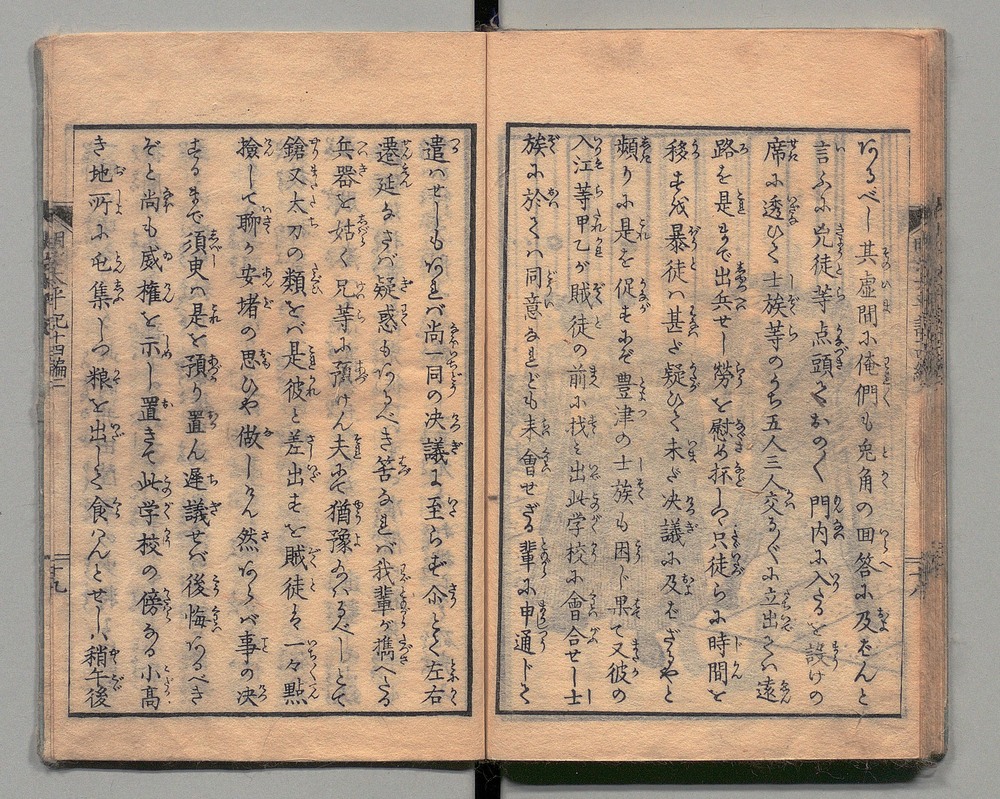 あるべし其虚間に俺們も兎角の回答に及ばんと
言ふに兇徒等点頭ておの〱門内に入るを設けの
席に透ひく士族等のうち五人三人交るがはに立出てい遠
路を是まで出兵せし労を慰め杯しつゝ只徒らに時間を
移すを暴徒ハ甚だ疑ひて未だ决議に及ばざるやと
頻りに是を促すにぞ豊津の士族も因じ果て又彼の
入江等甲乙が賊徒の前に找み出此学校に會合せし士
族に於てハ同意なれども未會せざる輩に申通じて
遣ハせしもあれバ尚一同の决議に至らず尓とて左右
遷延なさバ疑惑もあるべき筈なれバ我輩が携へたる
兵器を姑く兄等に預けん夫にて猶豫あるべしとて
鎗又太刀の類をバ是彼と差出すを賊徒は一々點
撿して聊か安堵の思ひや做しけん然あらバ事の决
するまで須臾ハ是を預り置ん遅議せバ後悔あるべき
ぞと尚も威権を示し置きて此学校の傍なる小高
き地所に屯集しつ粮を出して食ハんとせしハ稍午後
明治太平記十四編二
十九